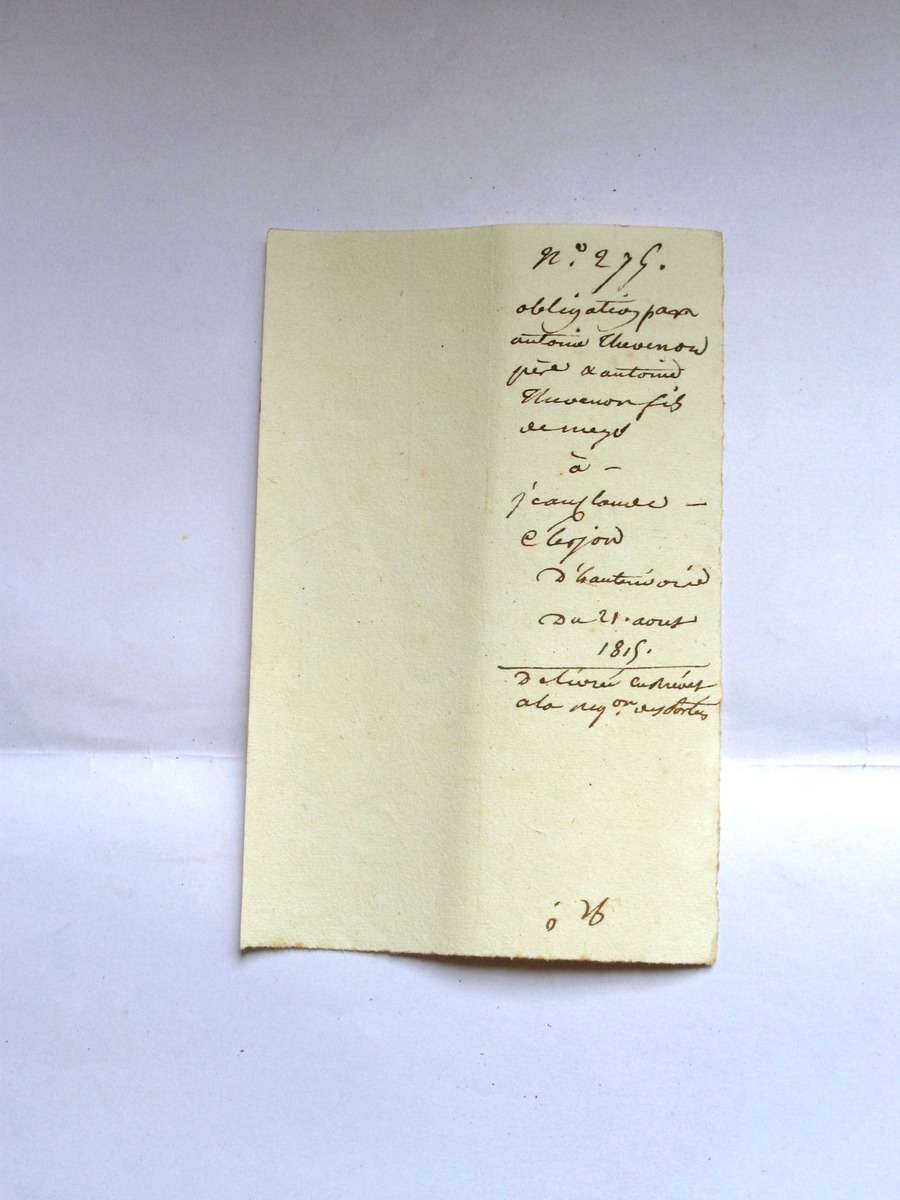 N.o 275.
obligation par
antoine Thevenon
père & antoine
Thevenon fils
de meys
à –
jean claude –
Clerjon
D'hauterivoire
Du 21. aout
1815.
Délivrée en Brévet
a la req.on des Parties